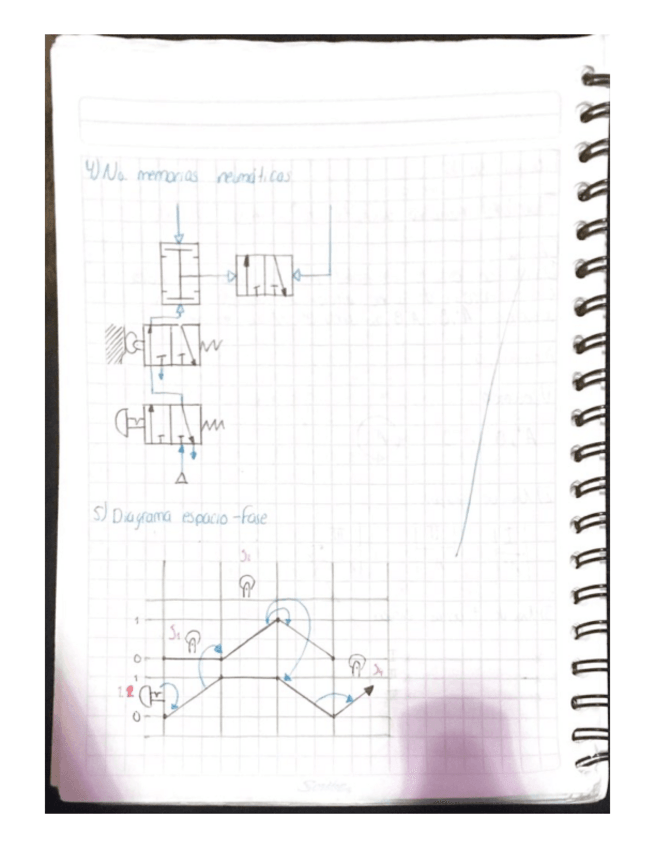 4) No. memorias neumáticas
5) Diagrama espacio-fase
S2
1
S2
0
1
S1
1
0